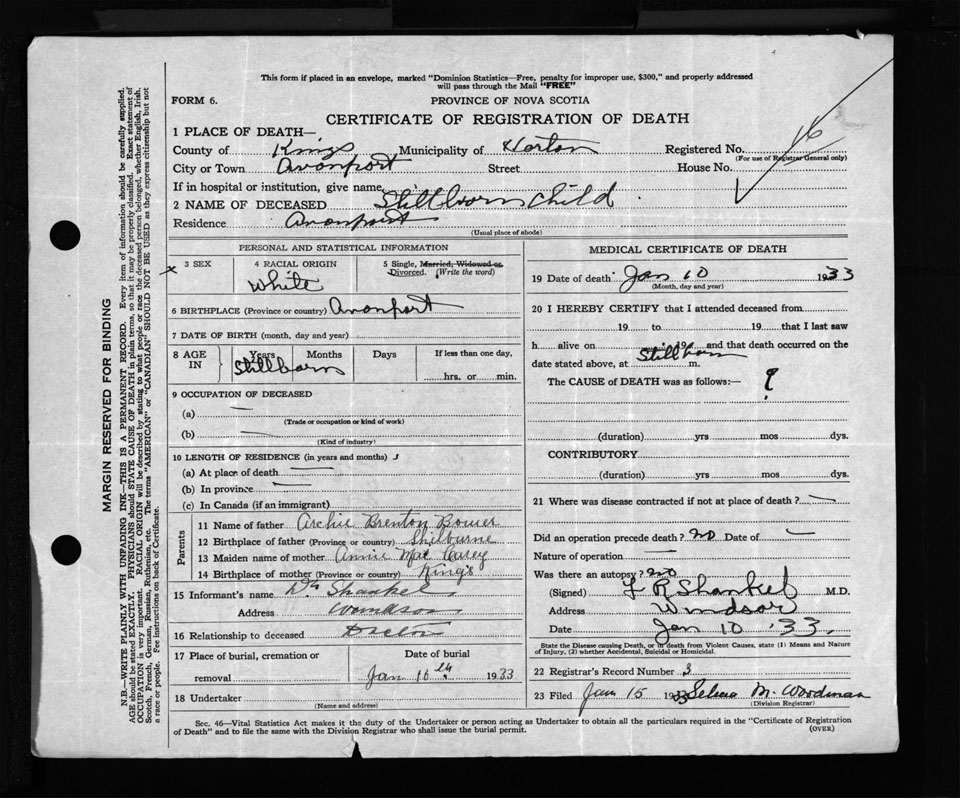 This form if placed in an envelope, marked "Dominion Statistics—Free, penalty for improper use, $300," and properly addressed
will pass through the Mail "FREE"
FORM 6. PROVINCE OF NOVA SCOTIA
CERTIFICATE OF REGISTRATION OF DEATH
1 PLACE OF DEATH—
County of Kings Municipality of Horton Registered No. 16
(For use of Registrar General only)
City or Town Avonport Street House No.
If in hospital or institution, give name
2 NAME OF DECEASED Stillborn Child
Residence Avonport
(Usual place of abode)
PERSONAL AND STATISTICAL INFORMATION
3 SEX 4 RACIAL ORIGIN 5 Single, Married, Widowed or
Divorced. (Write the word)
x White
6 BIRTHPLACE (Province or country) Avonport
7 DATE OF BIRTH (month, day and year)
8 AGE IN Years Months Days If less than one day,
Stillborn hrs. or min.
9 OCCUPATION OF DECEASED
(a) —
(Trade or occupation or kind of work)
(b) —
(Kind of industry)
10 LENGTH OF RESIDENCE (in years and months)
(a) At place of death —
(b) In province —
(c) In Canada (if an immigrant)
Parents
11 Name of father Archie Brenton Bower
12 Birthplace of father (Province or country) Shelburne
13 Maiden name of mother Annie Mae Carey
14 Birthplace of mother (Province or country) King's
15 Informant's name Dr Shankel
Address Windsor
16 Relationship to deceased Doctor
17 Place of burial, cremation or Date of burial
removal Jan 10th 1933
18 Undertaker
(Name and address)
MEDICAL CERTIFICATE OF DEATH
19 Date of death Jan 10 1933
(Month, day and year)
20 I HEREBY CERTIFY that I attended deceased from
19 to 19 that I last saw
h alive on 19 and that death occurred on the
date stated above, at Stillborn m.
The CAUSE of DEATH was as follows:— ?
(duration) yrs mos dys.
CONTRIBUTORY
(duration) yrs mos dys.
21 Where was disease contracted if not at place of death? —
Did an operation precede death? no Date of —
Nature of operation —
Was there an autopsy? no
(Signed) F R Shankel M.D.
Address Windsor
Date Jan 10 '33.
State the Disease causing Death, or in death from Violent Causes, state (1) Means and Nature
of Injury, (2) whether Accidental, Suicidal or Homicidal.
22 Registrar's Record Number 3
23 Filed Jan 15 1933 Selena M. Woodman
(Division Registrar)
Sec. 46—Vital Statistics Act makes it the duty of the Undertaker or person acting as Undertaker to obtain all the particulars required in the "Certificate of Registration
of Death" and to file the same with the Division Registrar who shall issue the burial permit. (OVER)
MARGIN RESERVED FOR BINDING
N.B.—WRITE PLAINLY WITH UNFADING INK—THIS IS A PERMANENT RECORD. Every item of information should be carefully supplied.
AGE should be stated EXACTLY. PHYSICIANS should STATE CAUSE OF DEATH in plain terms, so that it may be properly classified. Exact statement of
OCCUPATION is very important. RACIAL ORIGIN will be described by stating to what people or race the deceased person belonged, whether English, Irish,
Scotch, French, German, Russian, Ruthenian, etc. The terms "AMERICAN" or "CANADIAN" SHOULD NOT BE USED as they express citizenship but not
a race or people. Fee instructions on back of Certificate.